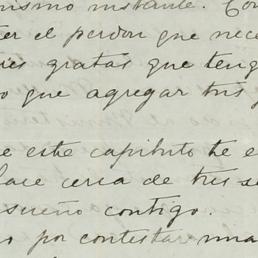 mismo instante. Con
er el perdon que nece
es gratas que teng
o que agregar tus
e este capitulo te e
ace cerca de tres se
sueño contigo.
o por contestar una